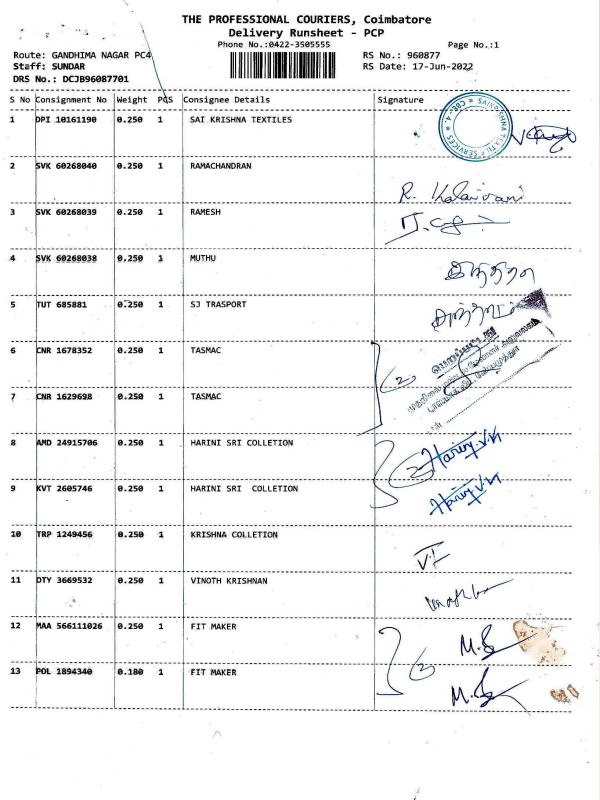 THE PROFESSIONAL COURIERS, Coimbatore
Delivery Runsheet - PCP
Phone No.:0422-3505555
Page No.:1
Route: GANDHIMA NAGAR PC4
RS No.: 960877
Staff: SUNDAR
RS Date: 17-Jun-2022
DRS No.: DCJB96087701
S No Consignment No Weight PCS Consignee Details Signature
1 DPI 10161190 0.250 1 SAI KRISHNA TEXTILES
2 SVK 60268040 0.250 1 RAMACHANDRAN R. Kalaivani
3 SVK 60268039 0.250 1 RAMESH
4 SVK 60268038 0.250 1 MUTHU
5 TUT 685881 0.250 1 SJ TRASPORT
6 CNR 1678352 0.250 1 TASMAC
2
7 CNR 1629698 0.250 1 TASMAC
8 AMD 24915706 0.250 1 HARINI SRI COLLETION
2 Hariny.V.K
9 KVT 2605746 0.250 1 HARINI SRI COLLETION
10 TRP 1249456 0.250 1 KRISHNA COLLETION
11 DTY 3669532 0.250 1 VINOTH KRISHNAN
12 MAA 566111026 0.250 1 FIT MAKER
2
13 POL 1894340 0.180 1 FIT MAKER